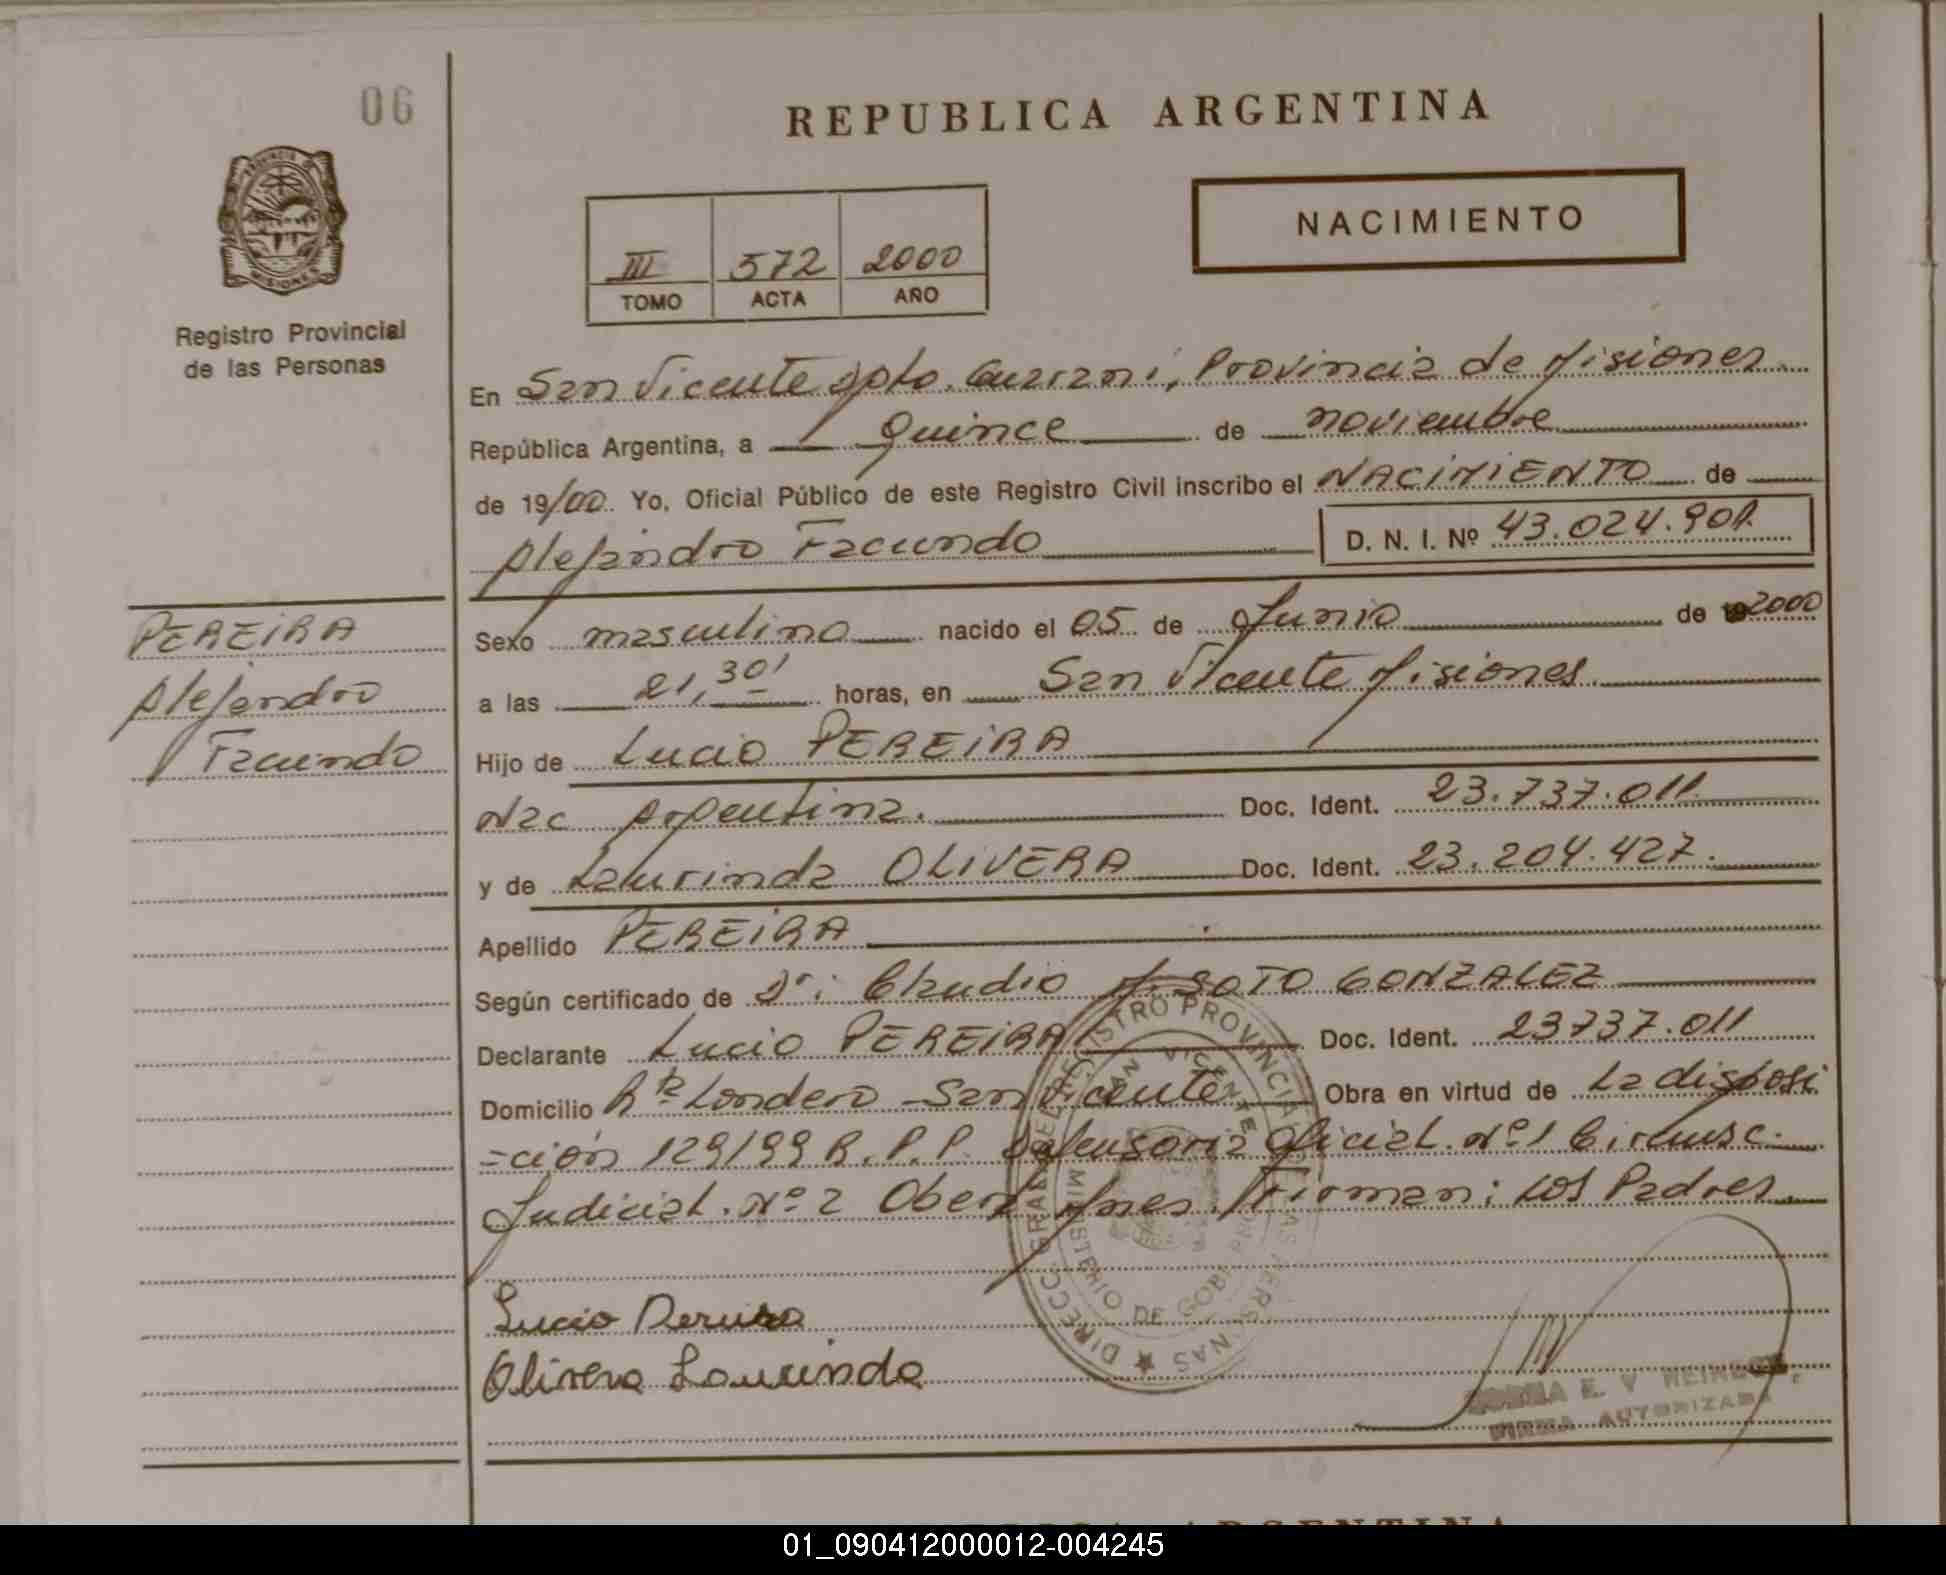 06
REPUBLICA ARGENTINA
PROVINCIA DE
MISIONES
Registro Provincial
de las Personas
III 572 2000
TOMO ACTA AÑO
NACIMIENTO
En San Vicente Dpto. Guarani, Provincia de Misiones
República Argentina, a Quince de noviembre
de 19/00. Yo, Oficial Público de este Registro Civil inscribo el NACIMIENTO de
Alejandro Facundo D. N. I. Nº 43.024.901.
PEREIRA
Alejandro
Facundo
Sexo masculino nacido el 05 de Junio de 2000
a las 21,30' horas, en San Vicente Misiones
Hijo de Lucio PEREIRA
Nac Argentina. Doc. Ident. 23.737.011
y de Laurinda OLIVERA Doc. Ident. 23.204.427.
Apellido PEREIRA
Según certificado de Dr: Claudio A. SOTO GONZALEZ
Declarante Lucio PEREIRA Doc. Ident. 23737.011
Domicilio Bº Londero - San Vicente Obra en virtud de La disposi
=ción 129/99 R.P.P. Defensoria Oficial. Nº 1 Circunsc.
Judicial. Nº 2 Obera Mnes. Firman: Los Padres
Lucio Pereira
Olivera Laurinda
DIRECC. GRAL. DEL REGISTRO PROVINCIAL DE LAS PERSONAS
SAN VICENTE
MINISTERIO DE GOB.
E. V REINECK
FIRMA AUTORIZADA
ARGENTINA
01_090412000012-004245